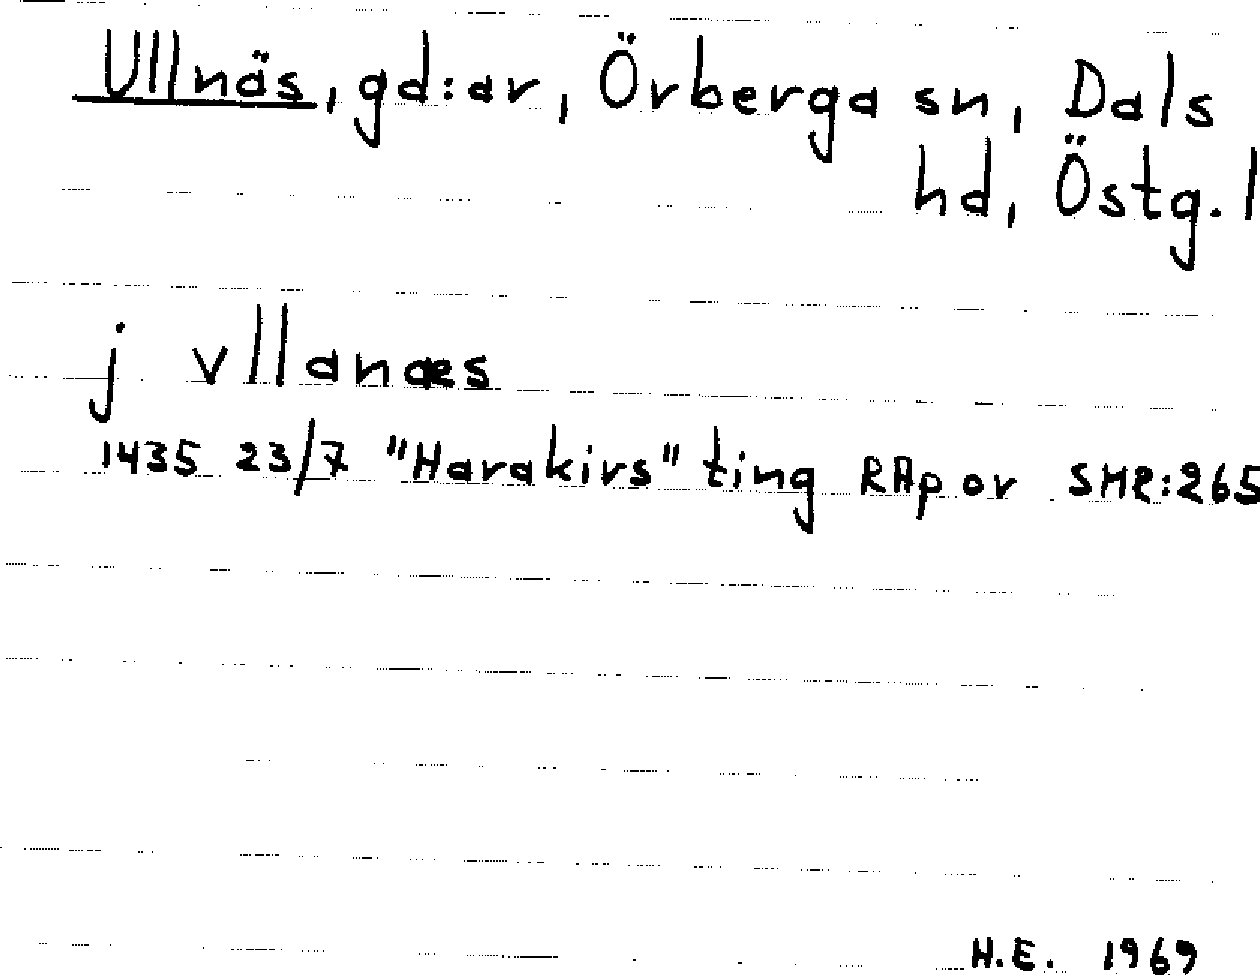 Ullnäs, gd:ar, Örberga sn, Dals
hd, Östg. l
j vllanæs
1435 23/7 "Harakirs" ting RAp or SMR:265
H.E. 1969